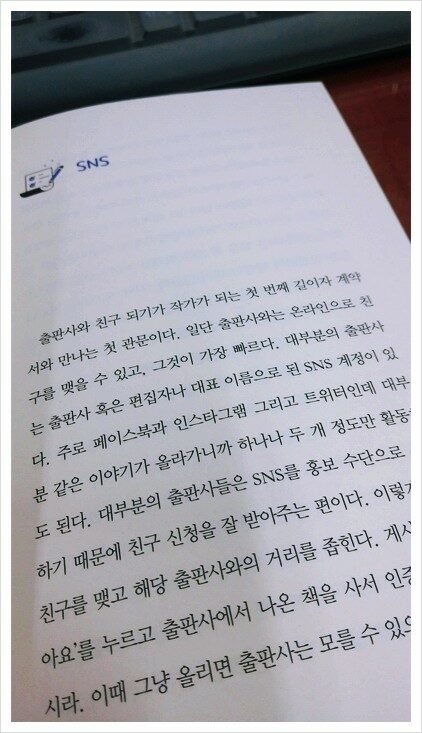 SNS
출판사와 친구 되기가 작가가 되는 첫 번째 길이자 계약
서와 만나는 첫 관문이다. 일단 출판사와는 온라인으로 친
구를 맺을 수 있고, 그것이 가장 빠르다. 대부분의 출판사
는 출판사 혹은 편집자나 대표 이름으로 된 SNS 계정이 있
다. 주로 페이스북과 인스타그램 그리고 트위터인데 대부
분 같은 이야기가 올라가니까 하나나 두 개 정도만 활동
도 된다. 대부분의 출판사들은 SNS를 홍보 수단으로
하기 때문에 친구 신청을 잘 받아주는 편이다. 이렇게
친구를 맺고 해당 출판사와의 거리를 좁힌다. 게시
아요’를 누르고 출판사에서 나온 책을 사서 인증
시라. 이때 그냥 올리면 출판사는 모를 수 있으